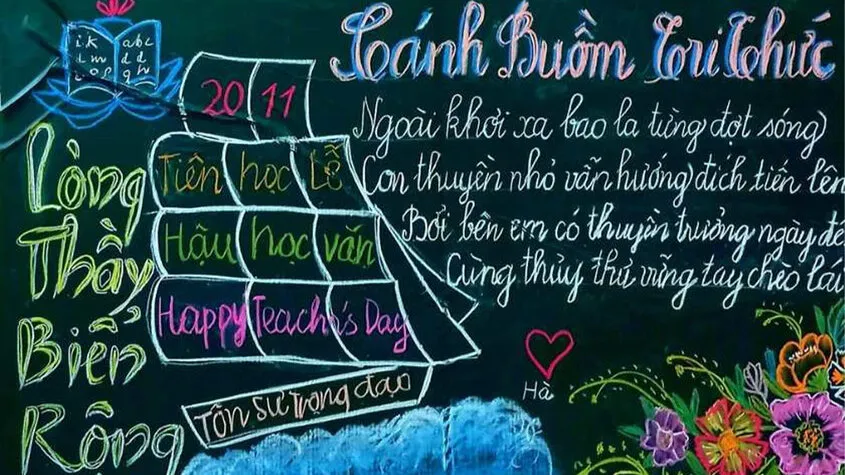 Cánh Buồm Tri Thức
Ngoài khơi xa bao la từng đợt sóng
Con thuyền nhỏ vẫn hướng đích tiến lên
Bởi bên em có thuyền trưởng ngày đê
Cùng thủy thủ vững tay chèo lái
Hà
ik abc
lm dd
nop qh
20 11
Tiên học Lễ
Hậu học văn
Happy Teacher's Day
Tôn sư trọng đạo
Lòng
Thầy
Biển
Rộng